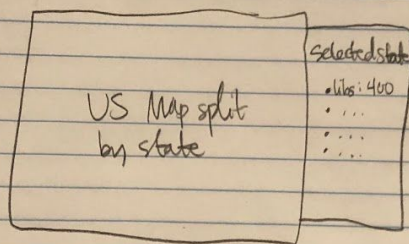 US Map split
by state
Selected state
• libs: 400
• ....
• ....
• ....